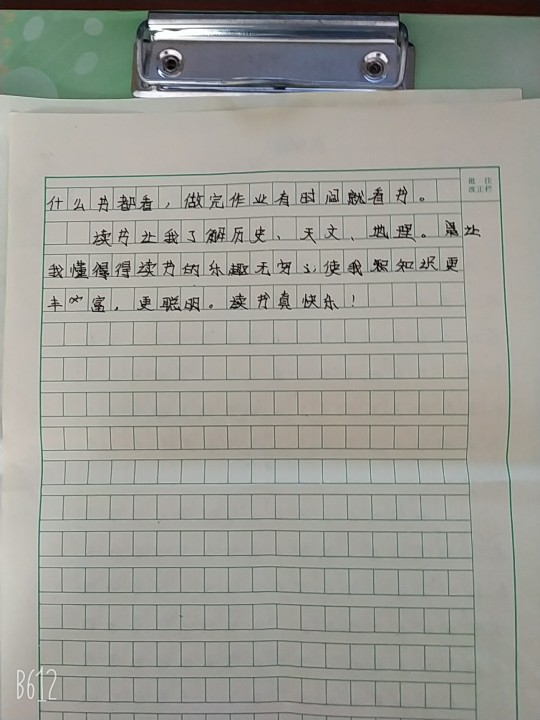 批 住
改正栏
什么书都看，做完作业有时间就看书。
读书让我了解历史、天文、地理。让
我懂得得读书的乐趣无穷，使我知识更
丰富，更聪明。读书真快乐！
B612